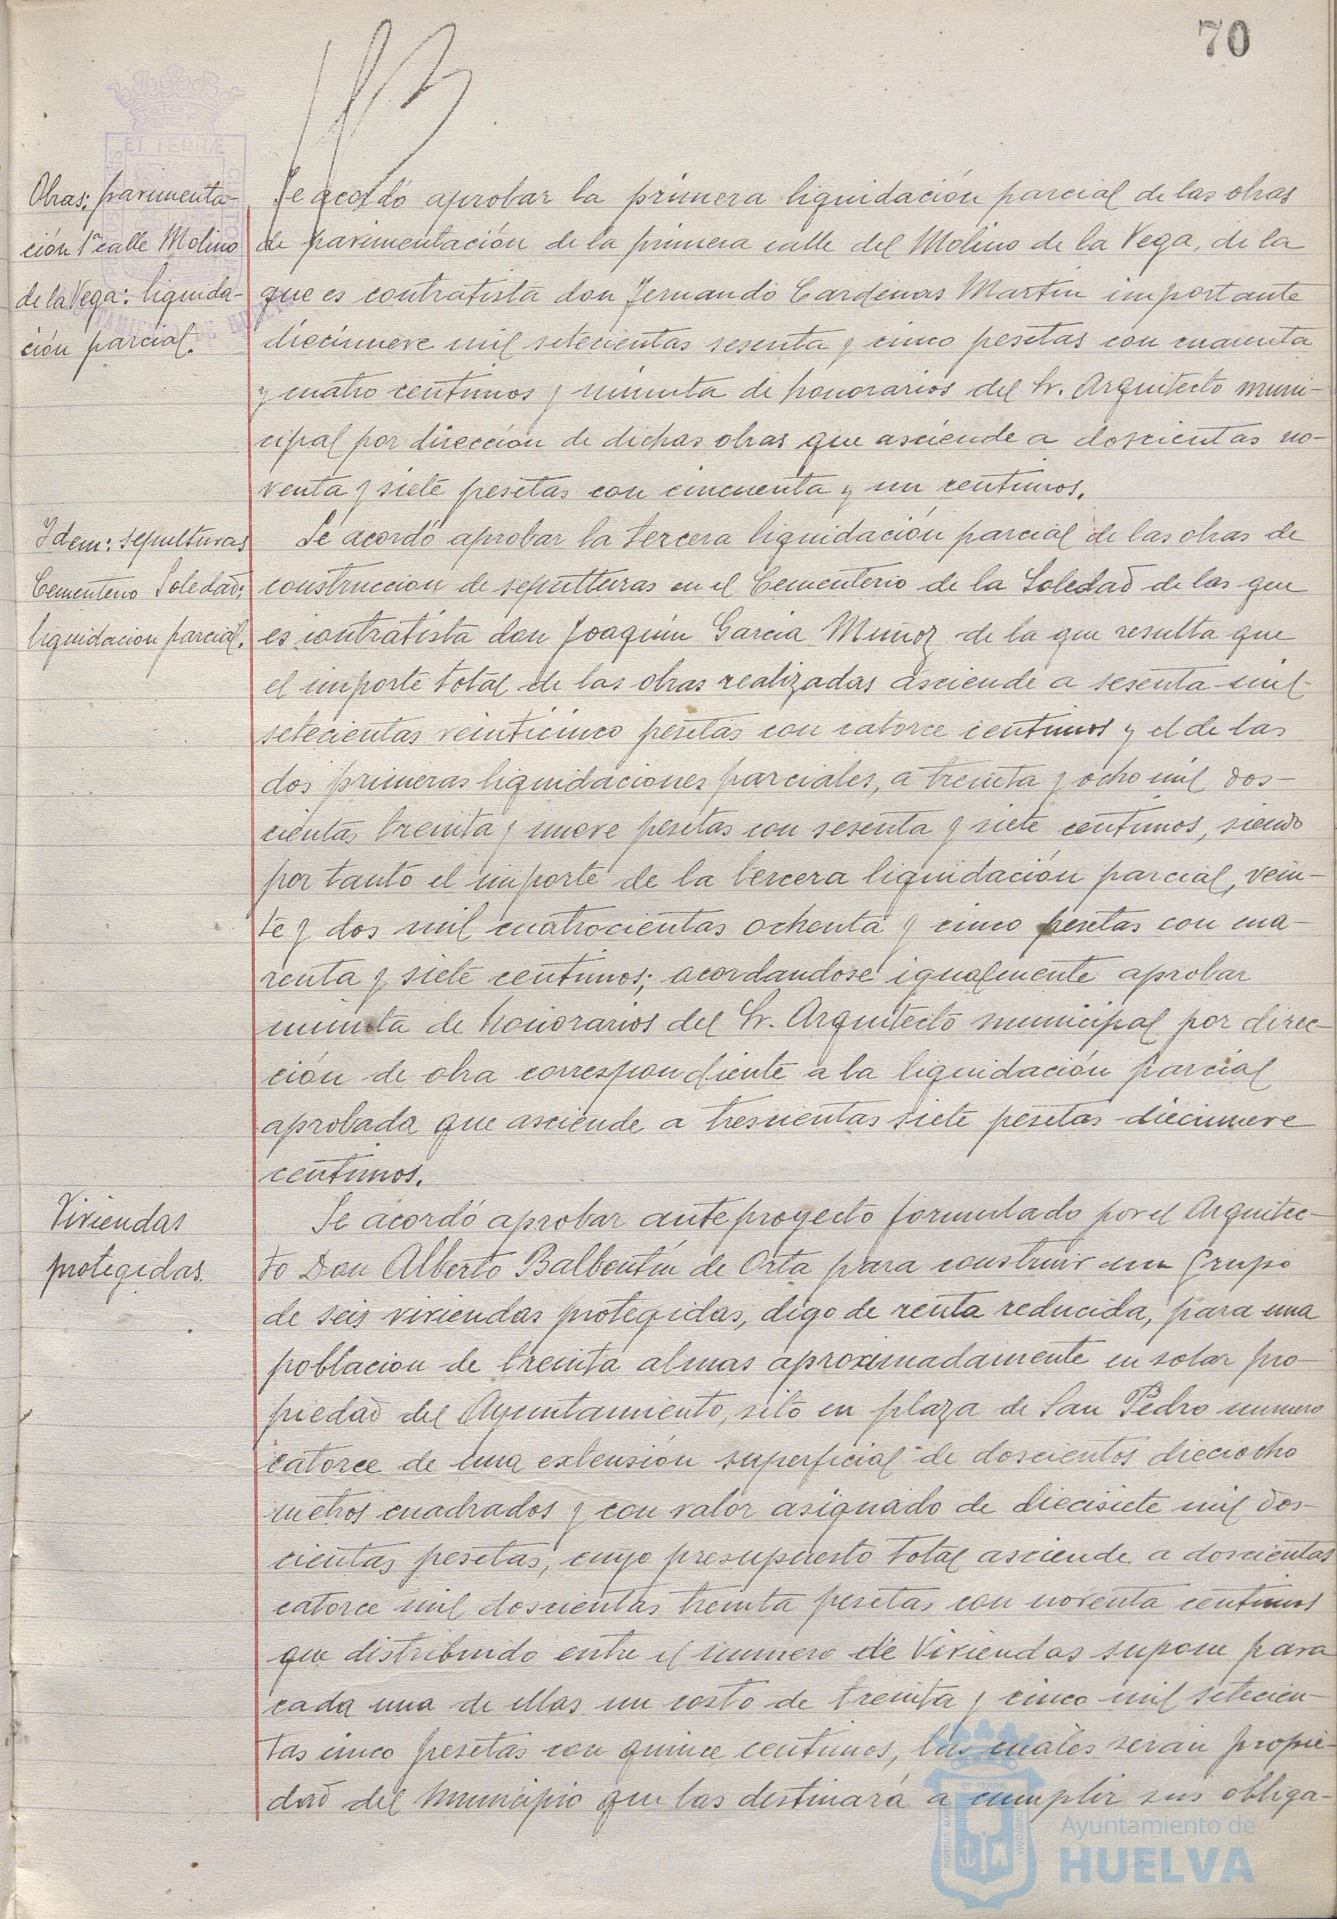 70
Obras; pavimenta-
ción 1ª calle Molino
de la Vega: liquida-
ción parcial.
Se acordó aprobar la primera liquidación parcial de las obras
de pavimentación de la primera calle del Molino de la Vega, de la
que es contratista don Fernando Cardenas Martin importante
diecinueve mil setecientas sesenta y cinco pesetas con cuarenta
y cuatro centimos y minuta de honorarios del Sr. Arquitecto muni-
cipal por dirección de dichas obras que asciende a doscientas no-
venta y siete pesetas con cincuenta y un centimos.
Idem: sepulturas
Cementerio Soledad;
liquidacion parcial.
Se acordó aprobar la tercera liquidación parcial de las obras de
construccion de sepulturas en el Cementerio de la Soledad de las que
es contratista don Joaquin Garcia Muñoz de la que resulta que
el importe total de las obras realizadas asciende a sesenta mil
setecientas veinticinco pesetas con catorce centimos y el de las
dos primeras liquidaciones parciales, a treinta y ocho mil dos-
cientas treinta y nueve pesetas con sesenta y siete centimos, siendo
por tanto el importe de la tercera liquidación parcial, vein-
te y dos mil cuatrocientas ochenta y cinco pesetas con cua-
renta y siete centimos; acordandose igualmente aprobar
minuta de honorarios del Sr. Arquitecto municipal por direc-
ción de obra correspondiente a la liquidación parcial
aprobada que asciende a trescientas siete pesetas diecinueve
centimos.
Viviendas
protegidas.
Se acordó aprobar anteproyecto formulado por el Arquitec-
to Don Alberto Balbontín de Orta para construir un Grupo
de seis viviendas protegidas, digo de renta reducida, para una
poblacion de treinta almas aproximadamente en solar pro-
piedad del Ayuntamiento, sito en plaza de San Pedro numero
catorce de una extensión superficial de doscientos dieciocho
metros cuadrados y con valor asignado de diecisiete mil dos-
cientas pesetas, cuyo presupuesto total asciende a doscientas
catorce mil doscientas treinta pesetas con noventa centimos
que distribuido entre el numero de Viviendas supone para
cada una de ellas un costo de treinta y cinco mil setecien-
tas cinco pesetas con quince centimos, las cuales seran propie-
dad del Municipio que las destinará a cumplir sus obliga-
Ayuntamiento de
HUELVA